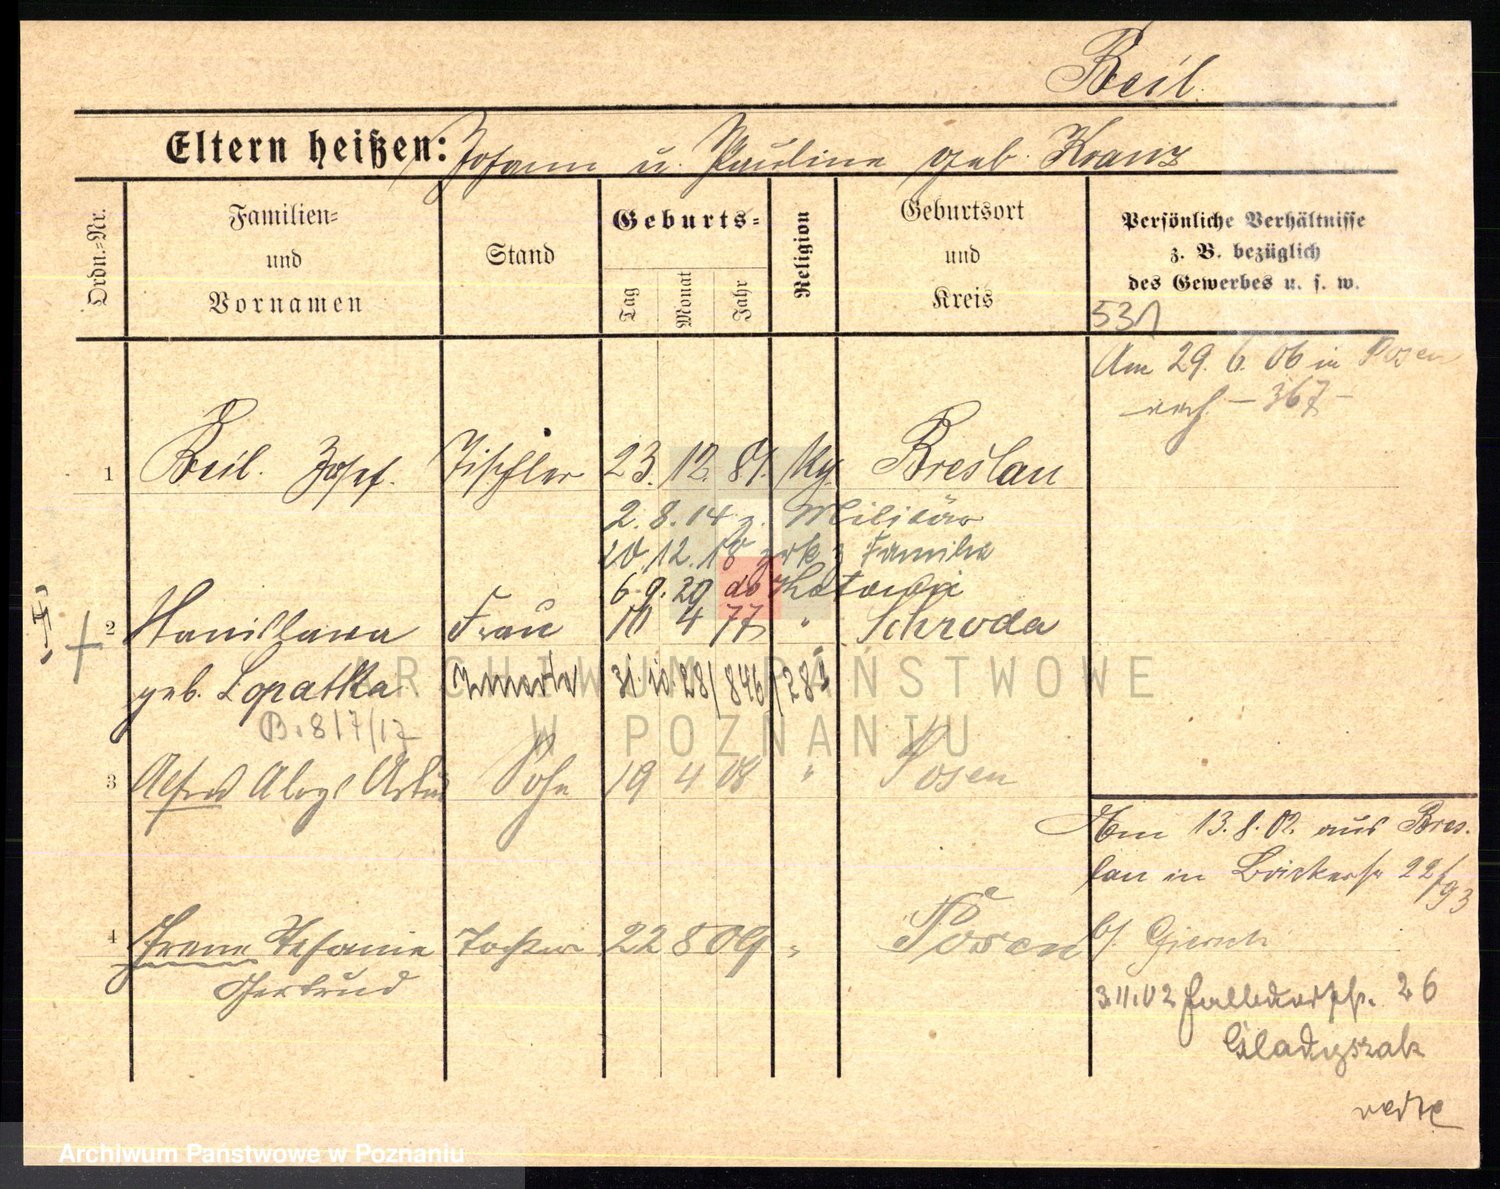 Beil.
Eltern heißen: Johann u. Pauline geb. Kranz
Ordn.-Nr.
Familien-
und
Vornamen
Stand
Geburts-
Tag
Monat
Jahr
Religion
Geburtsort
und
Kreis
Persönliche Verhältnisse
z. B. bezüglich
des Gewerbes u. s. w.
531
Am 29. 6. 06 in Posen
- 367 -
1 Beil. Josef. Tischler 23. 12. 81. Breslau
2. 8. 14 z. Militär
20.12.18 zrk z Familie
6.9.20 do
2 Stanislawa Frau 10 4 77 " Schroda
geb. Lopatka
B. 817/17
3 Alfred Aloys Artur Sohn 19 4 08 " Posen
4 Irene Stefanie Tochter 22 8 09 " Posen
Gertrud
Am 13. 8. 02. aus Bres-
lau in Bäckerstr 22/93
b/
3.11.02 26
Gladyszak
ARCHIWUM PAŃSTWOWE
W POZNANIU
Archiwum Państwowe w Poznaniu